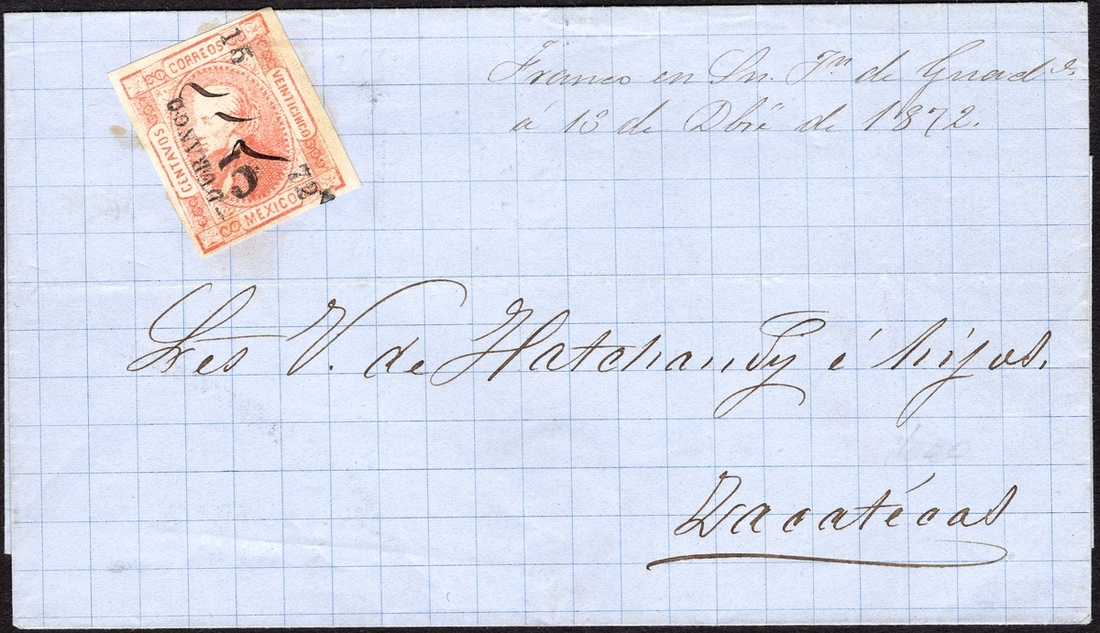 CORREOS
VEINTICINCO
CENTAVOS
MEXICO
15
72
DURANGO
Franco en Sn. Jn de Guade.
á 13 de Dbré de 1872.
V. de Hatchandy é hijos.
Zacatécas